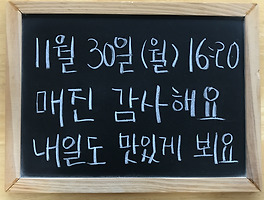 11월 30일(월) 16:20
매진 감사해요
내일도 맛있게 뵈요